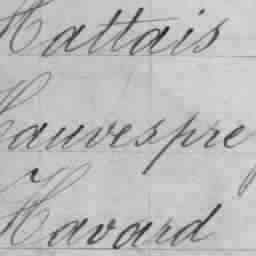 Hattais
Hauvespre
Havard